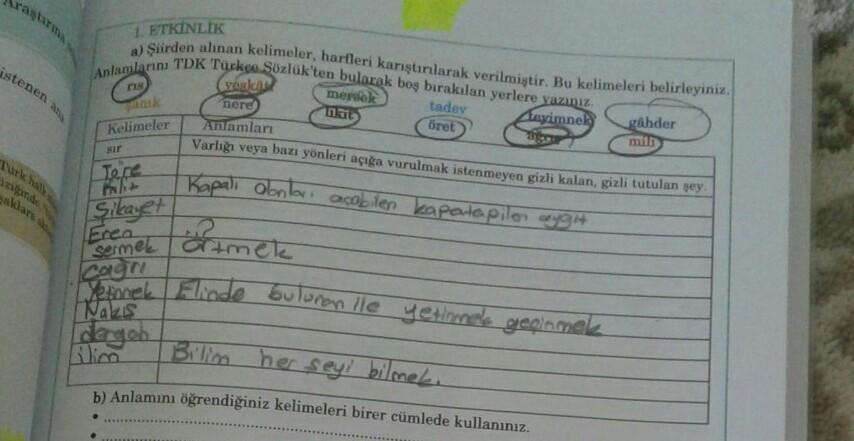 Araştırma
istenen
Türk halk
1. ETKİNLİK
a) Şiirden alınan kelimeler, harfleri karıştırılarak verilmiştir. Bu kelimeleri belirleyiniz.
Anlamlarını TDK Türkçe Sözlük'ten bularak boş bırakılan yerlere yazınız.
rıs mersek tadev teyimnek gâhder
nere likit öret mili
Kelimeler Anlamları
sır Varlığı veya bazı yönleri açığa vurulmak istenmeyen gizli kalan, gizli tutulan şey.
Töre
Kilit Kapalı olanları acabilen kapatapilen aygıt
Şikayet
Eren ?
sermek örtmek
Çağrı
Yetinmek Elinde bulunan ile yetinmek geçinmek
Nakış
dergah
ilim Bilim her şeyi bilmek.
b) Anlamını öğrendiğiniz kelimeleri birer cümlede kullanınız.